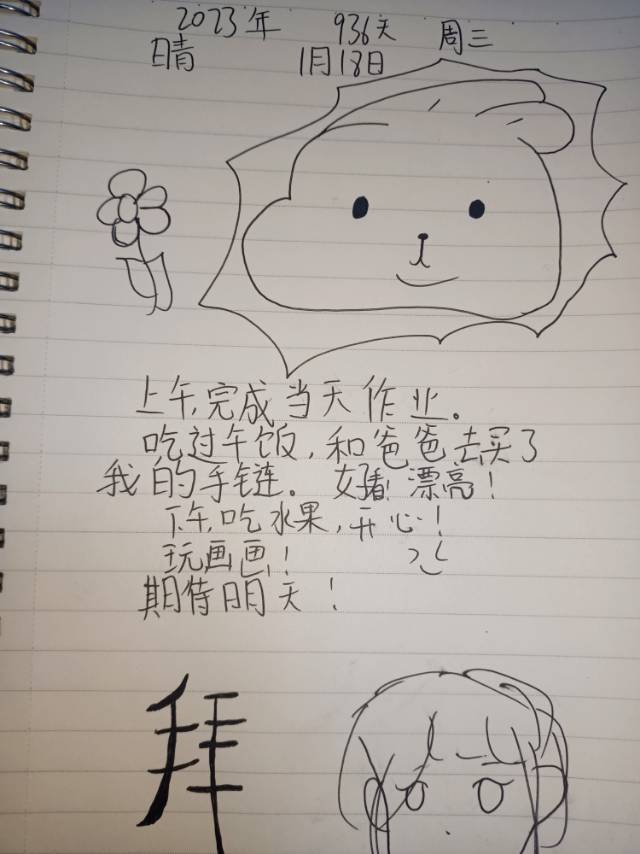 2023年 936天 周三
晴 1月18日
上午,完成当天作业。
吃过午饭,和爸爸去买了
我的手链。 漂亮!
下午,吃水果,开心!
玩画画!
期待明天!
拜